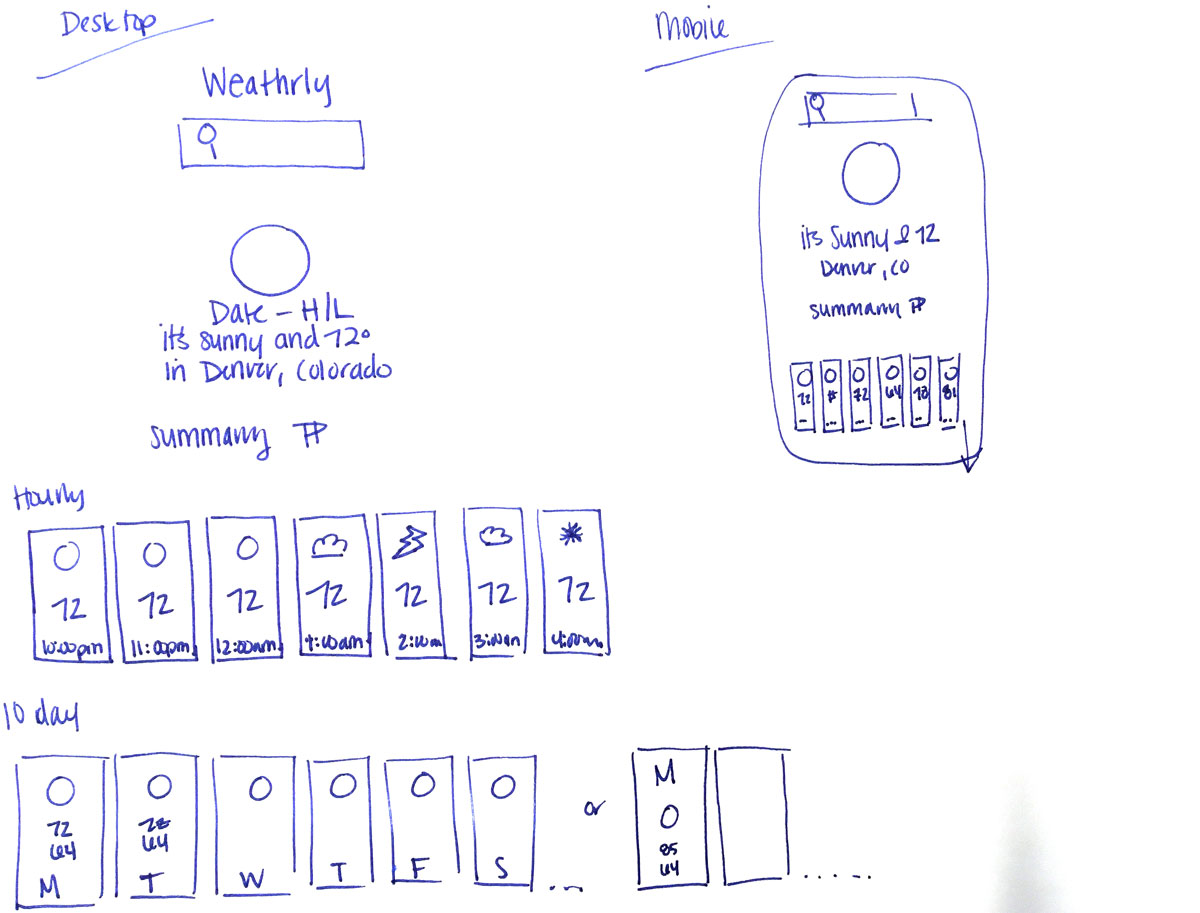 Desktop
Weathrly
Date – H/L
its sunny and 72°
in Denver, Colorado
summary
Hourly
72 72 72 72 72 72 72
10:00pm 11:00pm 12:00am 1:00am 2:00am 3:00am 4:00am
10 day
72 72
64 64
M T W T F S ...
or
M
85
64
.....
Mobile
its Sunny & 72
Denver, CO
summary
72 72 64 81